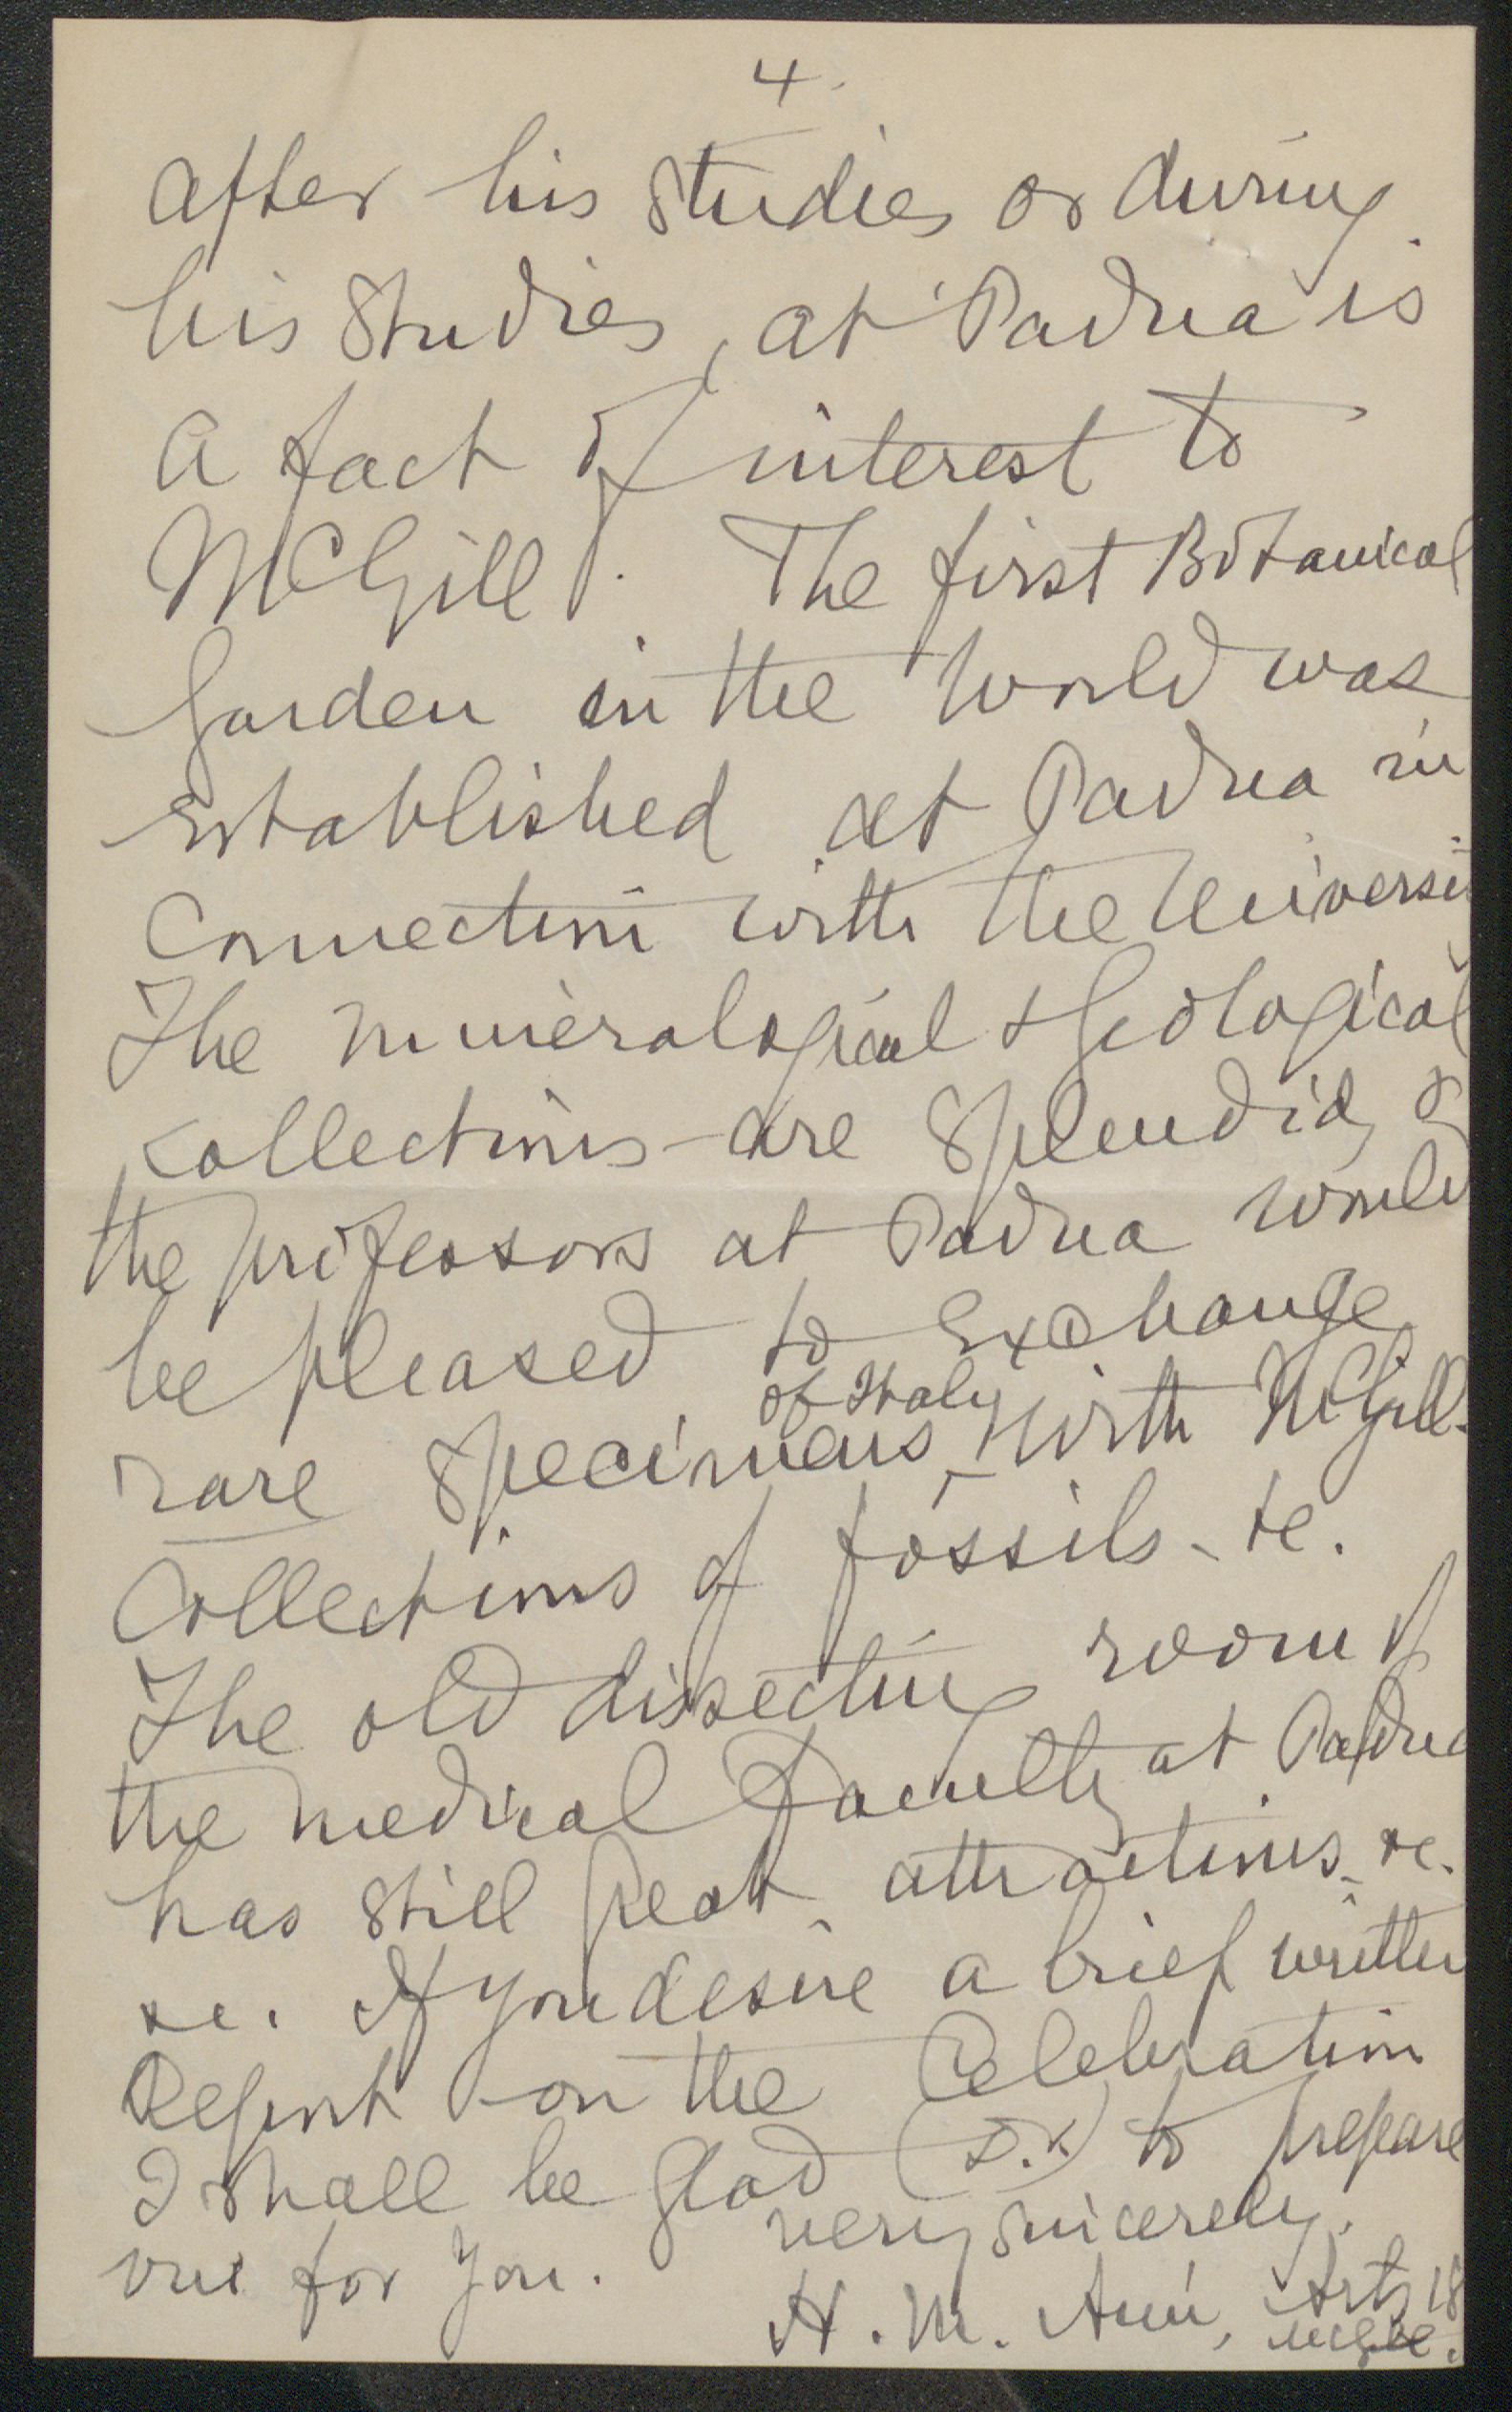 4.
after his studies or during
his studies, at Padua is
a fact of interest to
McGill. The first Botanical
Garden in the World was
established at Padua in
Connection with the Universi
The mineralogical & Geological
collections are splendid, &
the professors at Padua would
be pleased to exchange
of Italy
rare specimens with McGill
Collections of fossils - &c.
The old dissecting room of
the medical Faculty at Padua
has still great attractions &c.
&c. If you desire a brief written
Report on the Celebration
I shall be glad (D.V.) to prepare
one for you. very sincerely.
H. M. Ami, Arts 18
McGill.